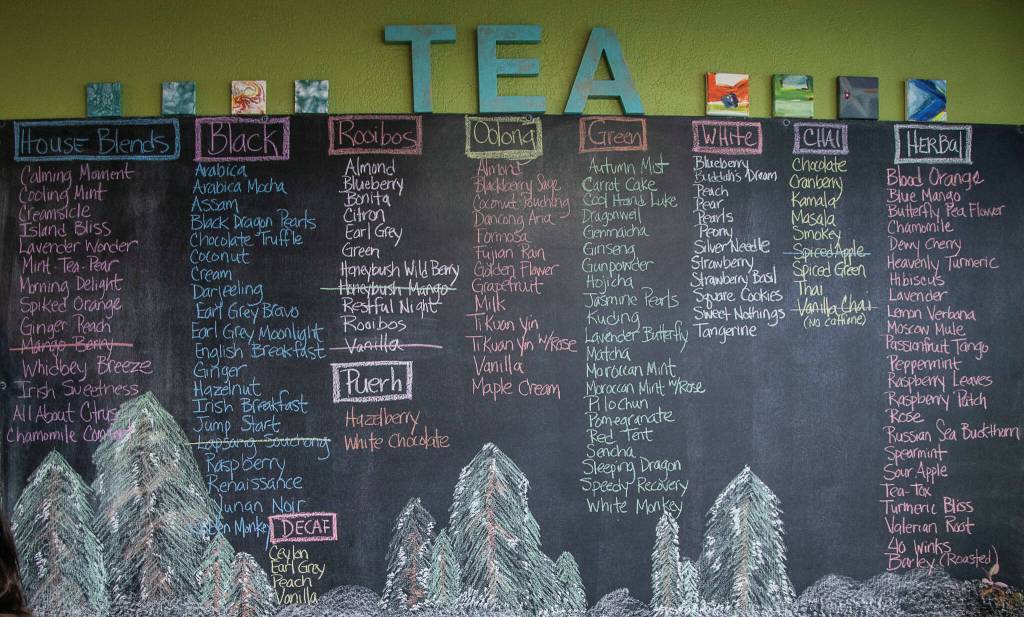 TEA
House Blends
Calming Moment
Cooling Mint
Creamsicle
Island Bliss
Lavender Wonder
Mint Tea-Pear
Morning Delight
Spiked Orange
Ginger Peach
Mango Berry
Whidbey Breeze
Irish Sweetness
All About Citrus
Chamomile
Black
Arabica
Arabica Mocha
Assam
Black Dragon Pearls
Chocolate Truffle
Coconut
Cream
Darjeeling
Earl Grey Bravo
Earl Grey Moonlight
English Breakfast
Ginger
Hazelnut
Irish Breakfast
Jump Start
Lapsang Souchong
Raspberry
Renaissance
Noir
Monkey
DECAF
Ceylon
Earl Grey
Peach
Vanilla
Rooibos
Almond
Blueberry
Bonita
Citron
Earl Grey
Green
Honeybush Wild Berry
Honeybush Mango
Restful Night
Rooibos
Vanilla
Puerh
Hazelberry
White Chocolate
Oolong
Almond
Blackberry Sage
Coconut Pouchong
Dancong Aria
Formosa
Fujian Rain
Golden Flower
Grapefruit
Milk
Ti Kuan Yin
Ti Kuan Yin w/Rose
Vanilla
Maple Cream
Green
Autumn Mist
Carrot Cake
Cool Hand Luke
Dragonwell
Genmaicha
Ginseng
Gunpowder
Hojicha
Jasmine Pearls
Kuding
Lavender Butterfly
Matcha
Moroccan Mint
Moroccan Mint w/Rose
Pi Lo Chun
Pomegranate
Red Tent
Sencha
Sleeping Dragon
Speedy Recovery
White Monkey
White
Blueberry
Buddah's Dream
Peach
Pear
Pearls
Peony
Silver Needle
Strawberry
Strawberry Basil
Square Cookies
Sweet Nothings
Tangerine
CHAI
Chocolate
Cranberry
Kamala
Masala
Smokey
Spiced Apple
Spiced Green
Thai
Vanilla Chai
(no caffiene)
HERBal
Blood Orange
Blue Mango
Butterfly Pea Flower
Chamomile
Dewy Cherry
Heavenly Turmeric
Hibiscus
Lavender
Lemon Verbana
Moscow Mule
Passionfruit Tango
Peppermint
Raspberry Leaves
Raspberry Patch
Rose
Russian Sea Buckthorn
Spearmint
Sour Apple
Tea-Tox
Turmeric Bliss
Valerian Root
40 Winks
Barley (Roasted)